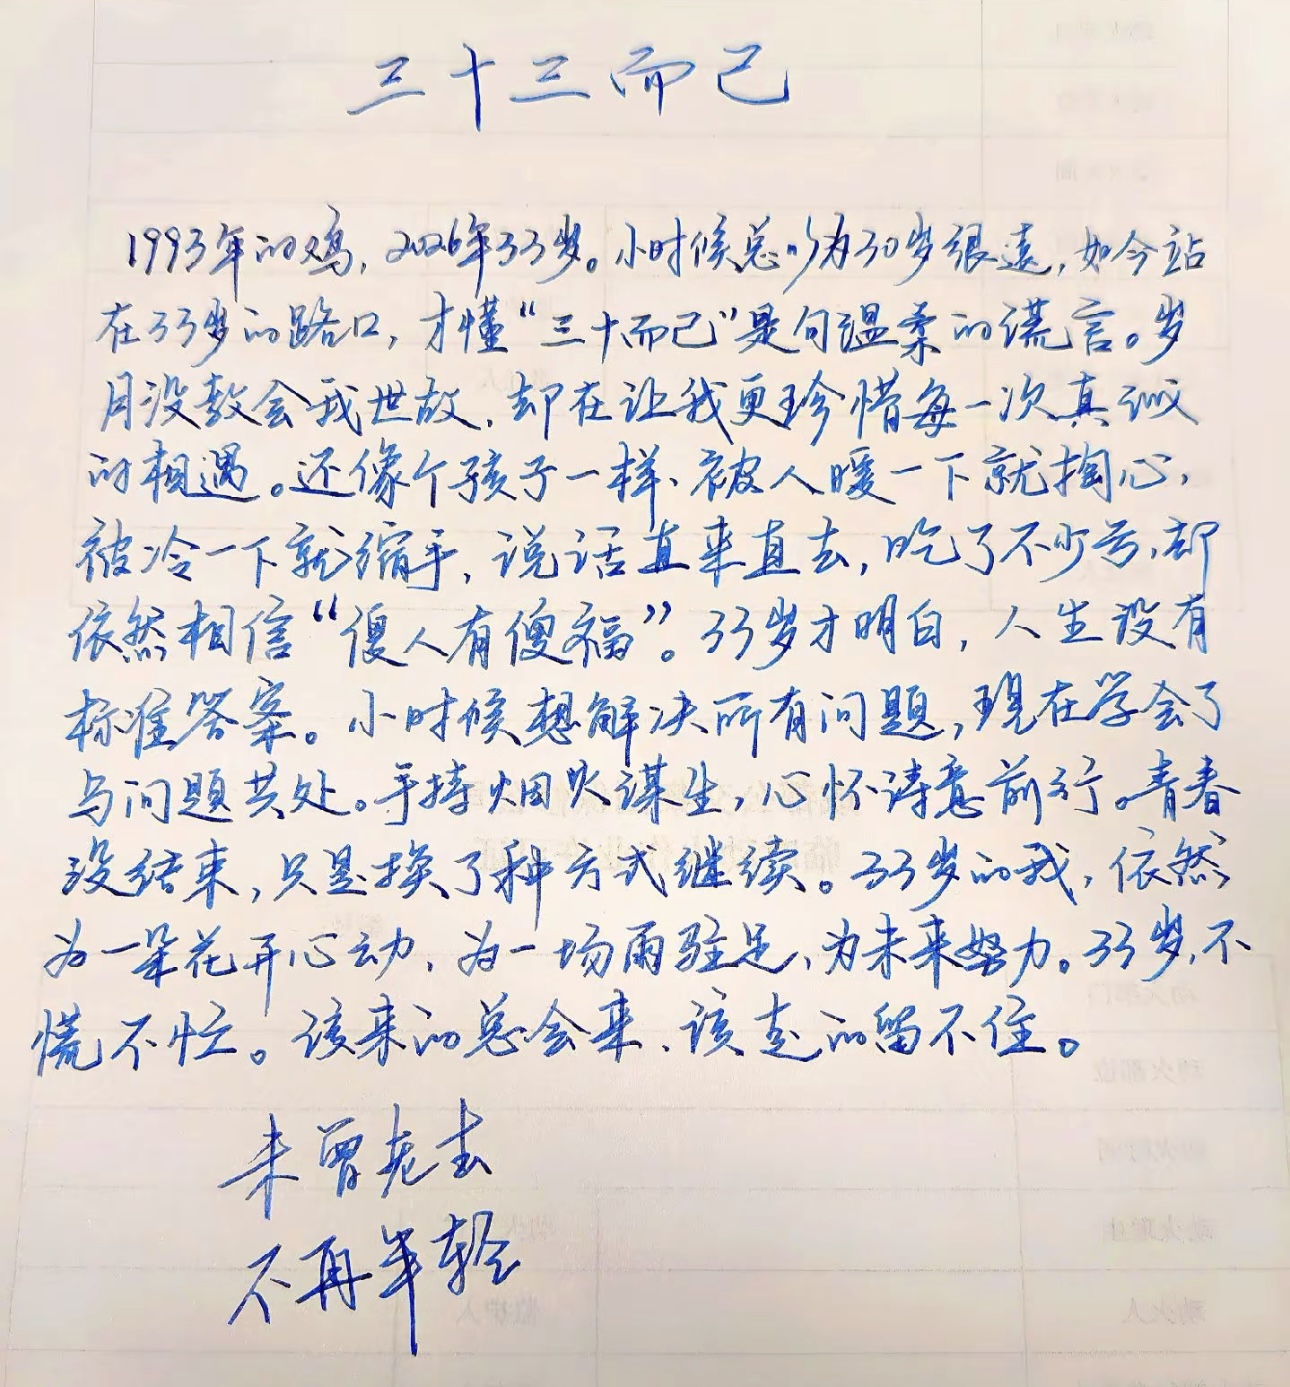 三十三而已
1993年的鸡，2026年33岁。小时候总以为30岁很远，如今站
在33岁的路口，才懂“三十而已”是句温柔的谎言。岁
月没教会我世故，却在让我更珍惜每一次真诚
的相遇。还像个孩子一样、被人暖一下就掏心，
被冷一下就缩手，说话直来直去，吃了不少亏，却
依然相信“傻人有傻福”。33岁才明白，人生没有
标准答案。小时候想解决所有问题，现在学会了
与问题共处。手持烟火谋生，心怀诗意前行。青春
没结束，只是换了种方式继续。33岁的我，依然
为一朵花开心动，为一场雨驻足，为未来努力。33岁，不
慌不忙。该来的总会来、该走的留不住。
未曾老去
不再年轻